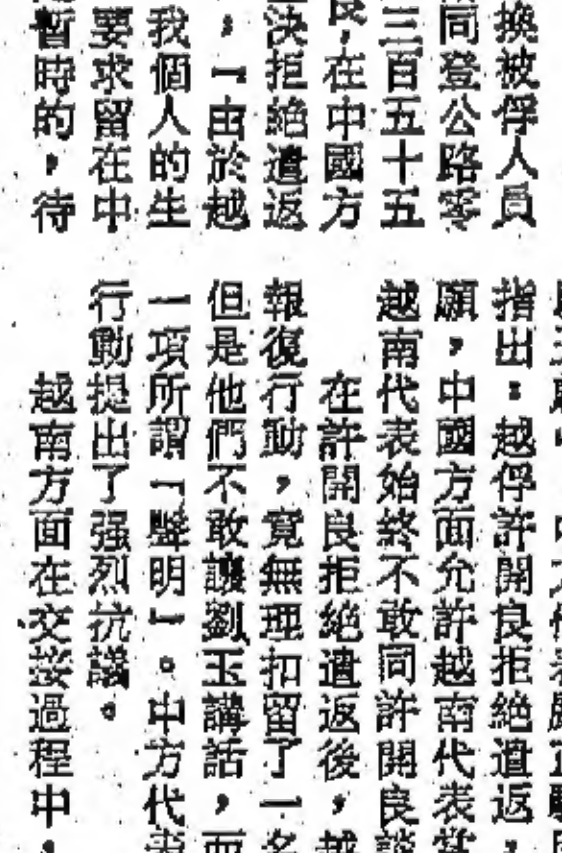 換被俘人員
同登公路零
三百五十五
良，在中國方
決拒絕遣返
，「由於越
我個人的生
要求留在中
暫時的，待
指出：越俘許開良拒絕遣返，
願，中國方面允許越南代表當
越南代表始終不敢同許開良談
在許開良拒絕遣返後，越
報復行動，竟無理扣留了一名
但是他們不敢讓劉玉講話，而
一項所謂「聲明」。中方代表
行動提出了强烈抗議。
越南方面在交接過程中，